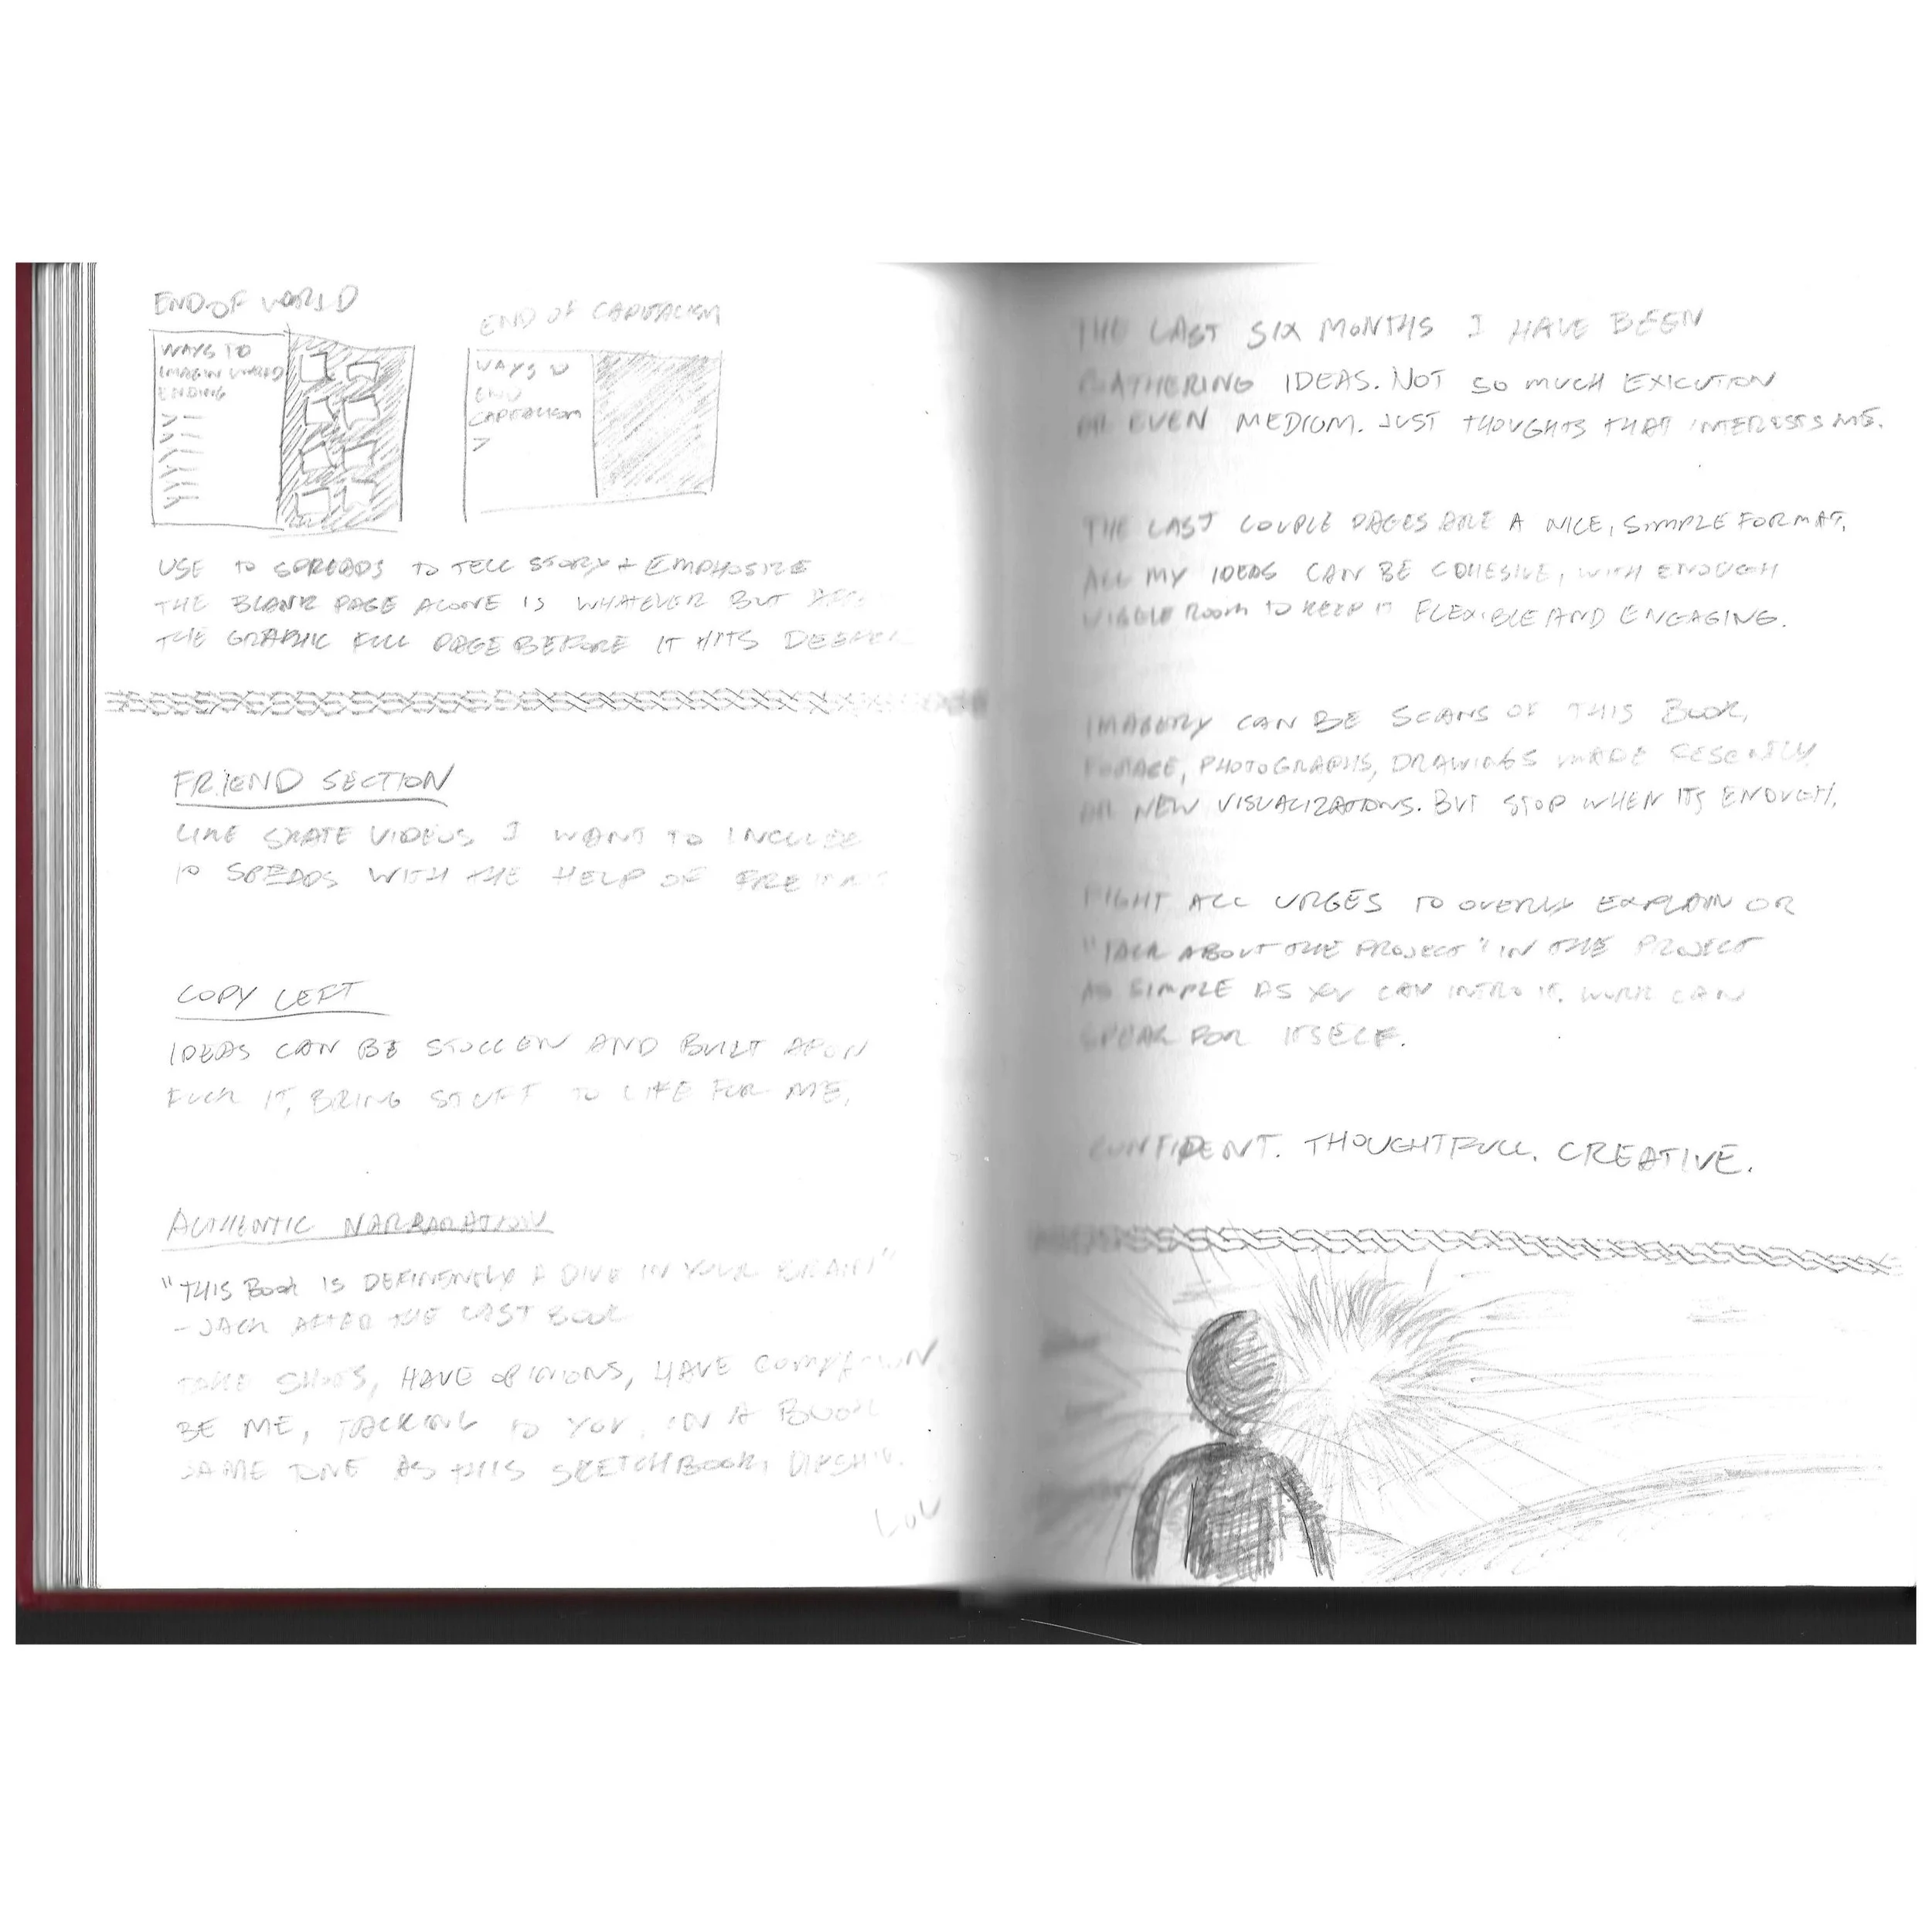 END OF WORLD
WAYS TO
IMAGIN WORLD
ENDING
END OF CAPITALISM
WAYS TO
END
CAPITALISM
>
USE TO SPREADS TO TELL STORY + EMPHOSIZE
THE BLANK PAGE ALONE IS WHATEVER BUT
THE GRAPHIC FULL PAGE BEFORE IT HITS DEEPER
FRIEND SECTION
LIKE SKATE VIDEOS I WANT TO INCLUDE
10 SPEADS WITH THE HELP OF
COPY LEFT
IDEAS CAN BE STOLLEN AND BUILT APON
FUCK IT, BRING STUFF TO LIFE FOR ME.
AUTHENTIC NARRARATION
"THIS BOOK IS DEFINENELY A DIVE IN YOUR BRAIN"
- JACK AFTER THE LAST BOOK
TAKE SHOTS, HAVE OPINIONS, HAVE
BE ME, TALKING TO YOU, IN A BOOK
SAME TONE AS THIS SKETCHBOOK,
LOL
THE LAST SIX MONTHS I HAVE BEEN
GATHERING IDEAS. NOT SO MUCH EXICUTION
OR EVEN MEDIUM. JUST THOUGHTS THAT INTERESTS ME.
THE LAST COUPLE PAGES ARE A NICE, SIMPLE FORMAT.
ALL MY IDEAS CAN BE COHESIVE, WITH ENOUGH
WIGGLE ROOM TO KEEP IT FLEXIBLE AND ENGAGING.
IMAGERY CAN BE SCANS OF THIS BOOK,
FOOTAGE, PHOTOGRAPHS, DRAWINGS MADE RESENTLY
OR NEW VISUALIZATIONS. BUT STOP WHEN ITS ENOUGH.
FIGHT ALL URGES TO OVERLY EXPLAIN OR
"TALK ABOUT THE PROJECT" IN THE PROJECT
AS SIMPLE AS YOU CAN INTRO IT. WORK CAN
SPEAK FOR ITSELF.
CONFIDENT. THOUGHTFULL. CREATIVE.